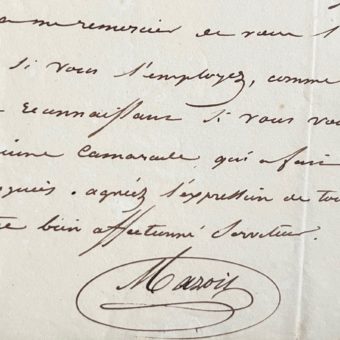 me remercier de vous
si vous l'employez, comme
reconnaissance si vous vou
camarade, qui a fait
agréez l'expression de tou
bien affectionné serviteur.
Marois